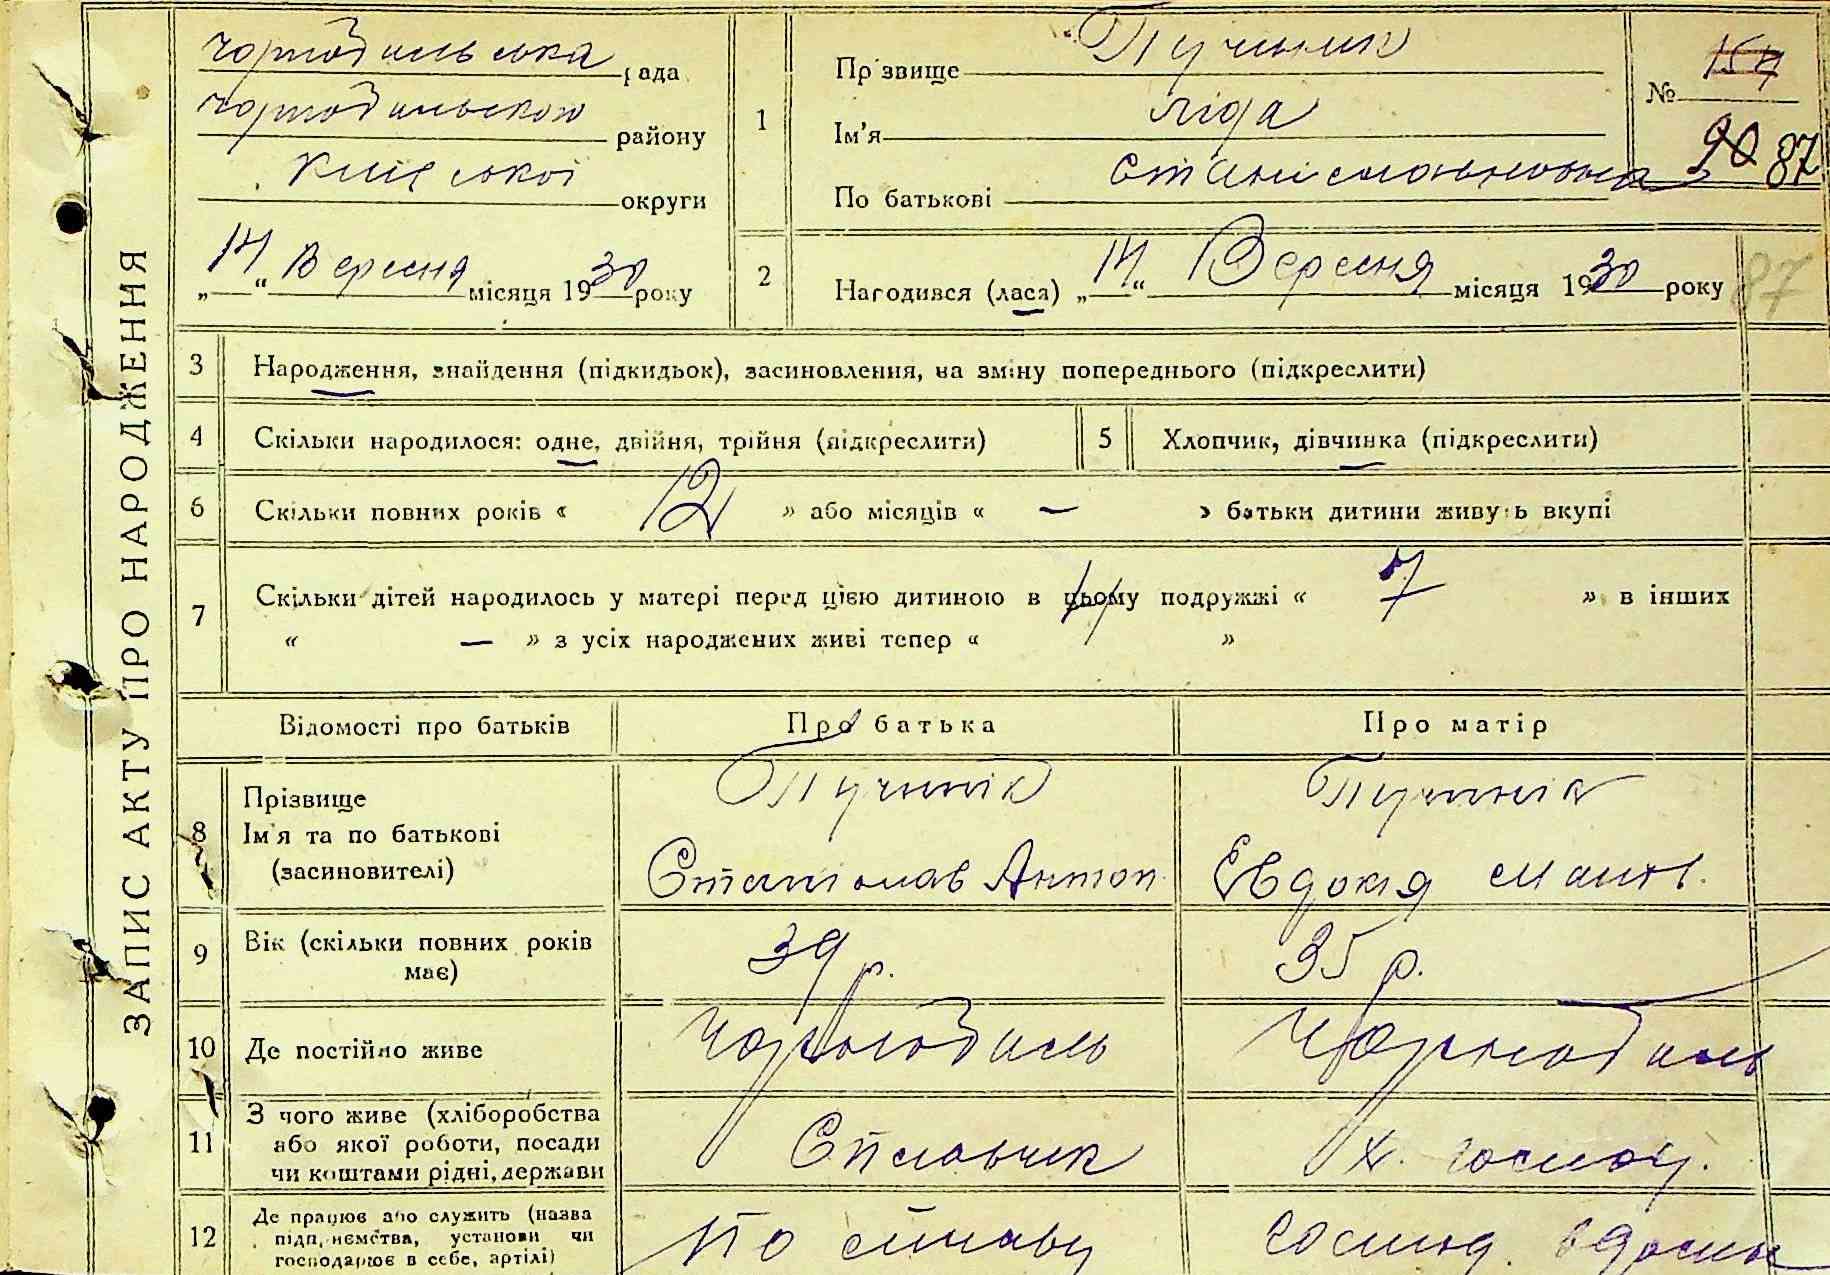 ЗАПИС АКТУ ПРО НАРОДЖЕННЯ
Чорнобильська рада
Чорнобильского району
Київської округи
„14“ Вересня місяця 1930 року
1
Прізвище
Ім'я Ліда
По батькові Станіславовна
№ 154
90 87
2
Народився (лася) „14“ Вересня місяця 1930 року
87
3 Народження, знайдення (підкидьок), засиновлення, на зміну попереднього (підкреслити)
4 Скільки народилося: одне, двійня, трійня (підкреслити)
5 Хлопчик, дівчинка (підкреслити)
6 Скільки повних років « 12 » або місяців « — » батьки дитини живуть вкупі
7 Скільки дітей народилось у матері перед цією дитиною в цьому подружжі « 7 » в інших
« — » з усіх народжених живі тепер « 4 »
Відомості про батьків
Про батька
Про матір
8 Прізвище
Ім'я та по батькові
(засиновителі)
Станіслав Антон.
Евдокія
9 Вік (скільки повних років має)
39 р.
35 р.
10 Де постійно живе
Чорнобиль
Чорнобиль
11 З чого живе (хліборобства
або якої роботи, посади
чи коштами рідні, держави
Сплавчик
12 Де працює або служить (назва
підприємства, установи чи
господарює в себе, артілі)
По сплаву